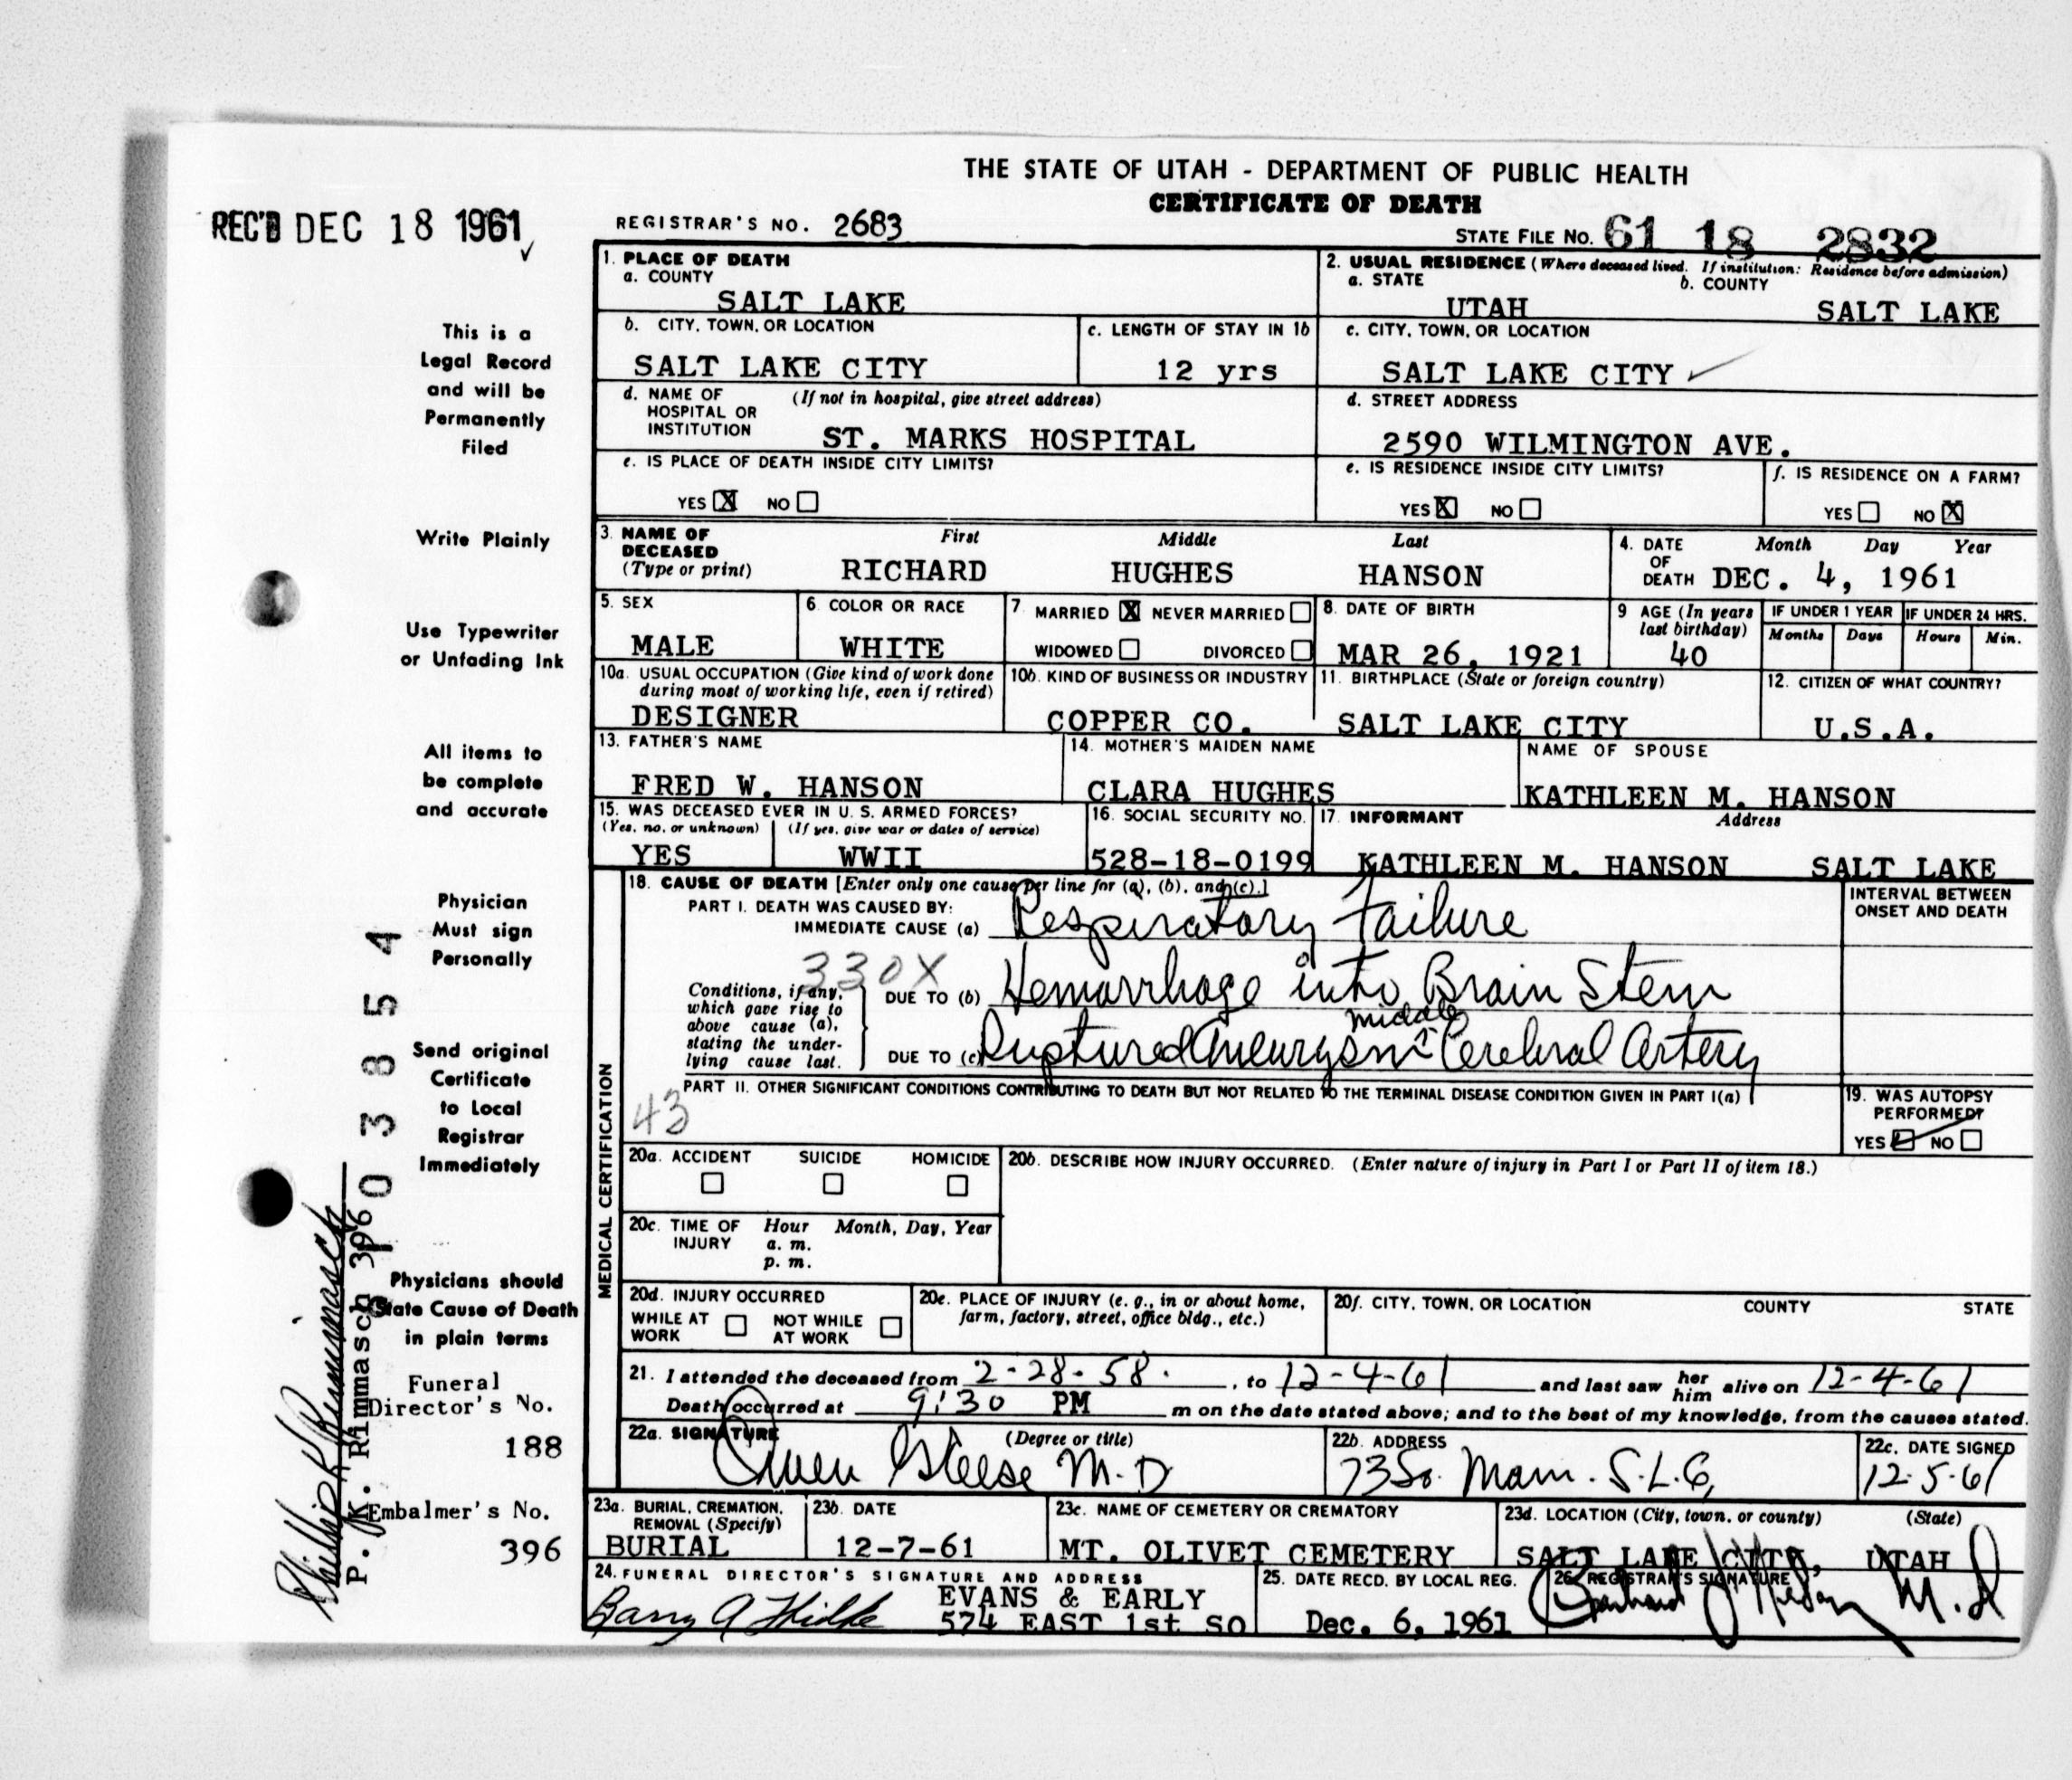 THE STATE OF UTAH - DEPARTMENT OF PUBLIC HEALTH
CERTIFICATE OF DEATH
REC'D DEC 18 1961
REGISTRAR'S NO. 2683
STATE FILE NO. 61 18 2832
1. PLACE OF DEATH
a. COUNTY
SALT LAKE
2. USUAL RESIDENCE (Where deceased lived. If institution: Residence before admission)
a. STATE b. COUNTY
UTAH SALT LAKE
b. CITY, TOWN, OR LOCATION
SALT LAKE CITY
c. LENGTH OF STAY IN 1b
12 yrs
c. CITY, TOWN, OR LOCATION
SALT LAKE CITY
d. NAME OF HOSPITAL OR INSTITUTION (If not in hospital, give street address)
ST. MARKS HOSPITAL
d. STREET ADDRESS
2590 WILMINGTON AVE.
e. IS PLACE OF DEATH INSIDE CITY LIMITS?
YES X NO
e. IS RESIDENCE INSIDE CITY LIMITS?
YES X NO
f. IS RESIDENCE ON A FARM?
YES NO X
3. NAME OF DECEASED (Type or print)
First Middle Last
RICHARD HUGHES HANSON
4. DATE OF DEATH
Month Day Year
DEC. 4, 1961
5. SEX
MALE
6. COLOR OR RACE
WHITE
7. MARRIED X NEVER MARRIED
WIDOWED DIVORCED
8. DATE OF BIRTH
MAR 26, 1921
9. AGE (In years last birthday)
40
IF UNDER 1 YEAR
Months Days
IF UNDER 24 HRS.
Hours Min.
10a. USUAL OCCUPATION (Give kind of work done during most of working life, even if retired)
DESIGNER
10b. KIND OF BUSINESS OR INDUSTRY
COPPER CO.
11. BIRTHPLACE (State or foreign country)
SALT LAKE CITY
12. CITIZEN OF WHAT COUNTRY?
U.S.A.
13. FATHER'S NAME
FRED W. HANSON
14. MOTHER'S MAIDEN NAME
CLARA HUGHES
NAME OF SPOUSE
KATHLEEN M. HANSON
15. WAS DECEASED EVER IN U. S. ARMED FORCES?
(Yes, no, or unknown) (If yes, give war or dates of service)
YES WWII
16. SOCIAL SECURITY NO.
528-18-0199
17. INFORMANT Address
KATHLEEN M. HANSON SALT LAKE
MEDICAL CERTIFICATION
18. CAUSE OF DEATH [Enter only one cause per line for (a), (b), and (c).]
PART I. DEATH WAS CAUSED BY:
IMMEDIATE CAUSE (a) Respiratory Failure
INTERVAL BETWEEN ONSET AND DEATH
330X
Conditions, if any, which gave rise to above cause (a), stating the underlying cause last.
DUE TO (b) Hemorrhage into Brain Stem
DUE TO (c) Ruptured Aneurysm middle Cerebral Artery
PART II. OTHER SIGNIFICANT CONDITIONS CONTRIBUTING TO DEATH BUT NOT RELATED TO THE TERMINAL DISEASE CONDITION GIVEN IN PART I(a)
43
19. WAS AUTOPSY PERFORMED?
YES NO
20a. ACCIDENT SUICIDE HOMICIDE
20b. DESCRIBE HOW INJURY OCCURRED. (Enter nature of injury in Part I or Part II of item 18.)
20c. TIME OF INJURY Hour Month, Day, Year
a. m.
p. m.
20d. INJURY OCCURRED
WHILE AT WORK NOT WHILE AT WORK
20e. PLACE OF INJURY (e. g., in or about home, farm, factory, street, office bldg., etc.)
20f. CITY, TOWN, OR LOCATION COUNTY STATE
21. I attended the deceased from 2-28-58. , to 12-4-61 and last saw her him alive on 12-4-61
Death occurred at 9:30 PM m on the date stated above; and to the best of my knowledge, from the causes stated.
22a. SIGNATURE (Degree or title)
M.D
22b. ADDRESS
73 So. Main. S.L.C,
22c. DATE SIGNED
12-5-61
23a. BURIAL, CREMATION, REMOVAL (Specify)
BURIAL
23b. DATE
12-7-61
23c. NAME OF CEMETERY OR CREMATORY
MT. OLIVET CEMETERY
23d. LOCATION (City, town, or county) (State)
SALT LAKE CITY, UTAH
24. FUNERAL DIRECTOR'S SIGNATURE AND ADDRESS
EVANS & EARLY
574 EAST 1st SO
25. DATE RECD. BY LOCAL REG.
Dec. 6, 1961
26. REGISTRAR'S SIGNATURE
M.D
This is a
Legal Record
and will be
Permanently
Filed
Write Plainly
Use Typewriter
or Unfading Ink
All items to
be complete
and accurate
Physician
Must sign
Personally
Send original
Certificate
to Local
Registrar
Immediately
Physicians should
State Cause of Death
in plain terms
Funeral
Director's No.
188
Embalmer's No.
396
P. K. Rimmasch 396
03854